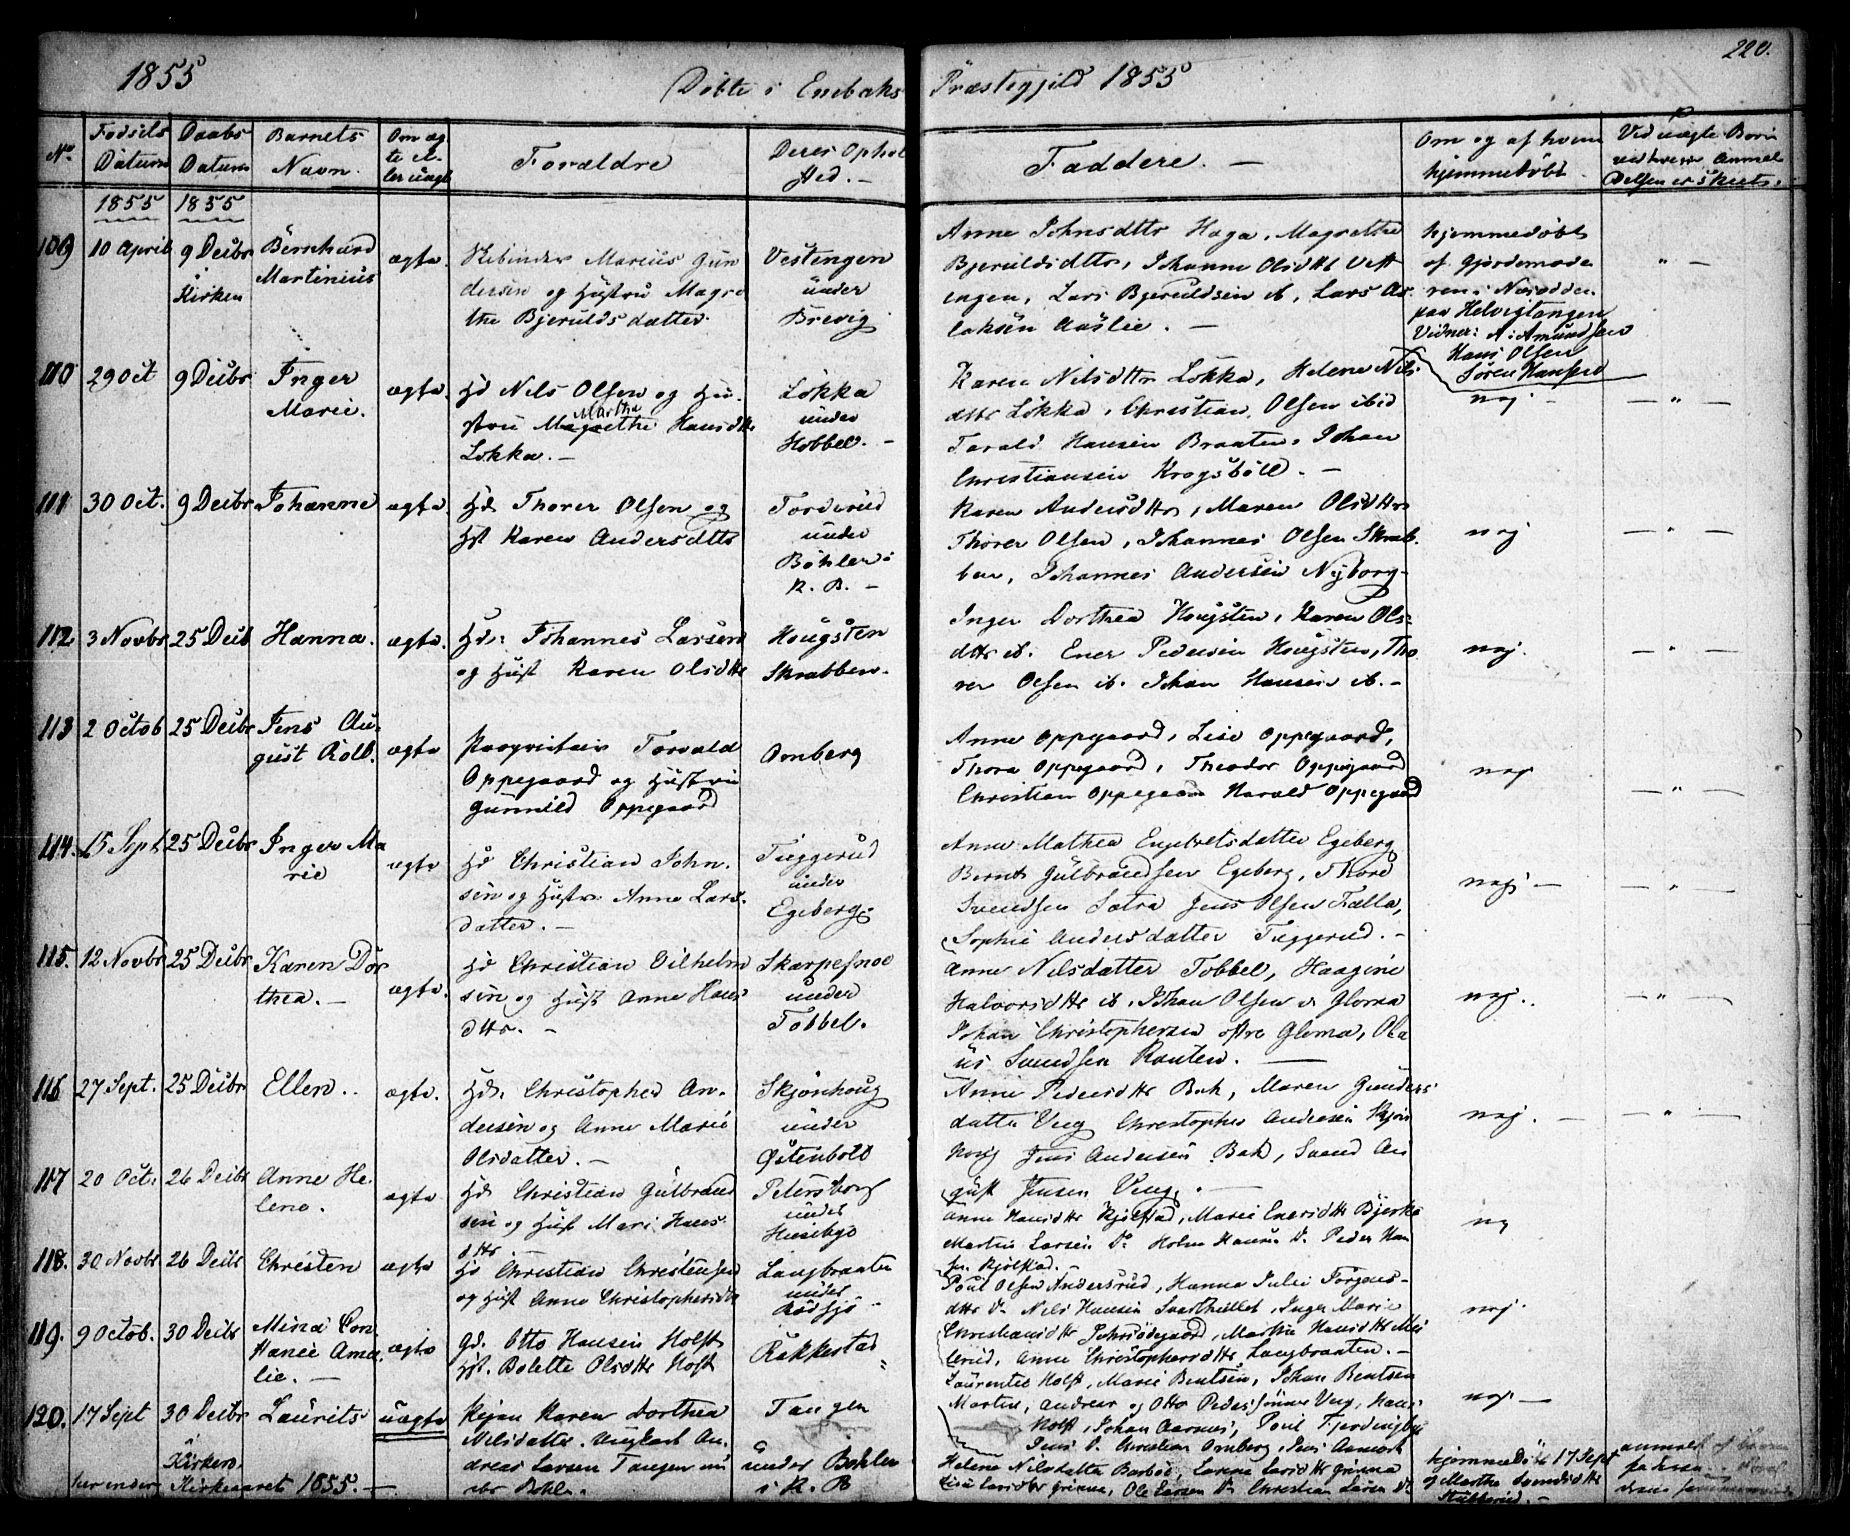 220.
1855
Döbte i Enebaks Præstegjeld 1855
No Födsels Datum Daabs Datum Barnets Navn. Om ægte el- ler uægte Forældre Deres Ophold Sted. Faddere. Om og af hvem hjemmedöbt Ved uægte Börn
1855 1855
109 10 April 9 Decbr i Kirken Bernhard Martinius ægte. Marius Gun
dersen og Hustru Magre
the Bjerulds datter.
Vestengen
under
Brevig
Anne Johnsdttr Haga, Magrethe
Bjeruldsdttr, Johanne Olsdttr Vest
engen, Lars Bjeruldsen ib, Lars As-
laksen Aaslie. -
hjemmedöbt
af Gjordemode
ren i Næsodden
paa Helvigtangen
Vidner: A: Amundsen
Hans Olsen
Sören Hansen
110 29 Oct 9 Decbr Inger
Marie.
ægte. Hd Nils Olsen og Hu-
stru Martha Magrethe Hansdttr
Lökka. -
Lökka
under
Hobbel. -
Karen Nilsdttr Lökka, Helene Nils
dttr Lökka, Christian Olsen ibid
Torald Hansen Braaten, Johan
Christiansen Krogsböll. -
nej -
111 30 Oct. 9 Decbr Johanne ægte. Hd. Thorer Olsen og
Hst Karen Andersdttr
Torderud
under
Böhler i
R. B. -
Karen Andersdttr, Maren Olsdttr
Thorer Olsen, Johannes Olsen Skrab-
ben, Johannes Andersen Nyborg-
nej
112 3 Novbr 25 Decb Hanna. ægte. Hd. Johannes Larsen
og Hust Karen Olsdttr
Hougsten
Skrabben.
Inger Dorthea Hougsten, Karen Ols-
dttr ib. Ener Pedersen Hougsten, Tho
rer Olsen ib. Johan Hansen ib. -
nej.
113 2 Octob 25 Decbr Jens Au-
gust Rolb.
ægte Proprietair Torvald
Oppegaard og Hustru
Gunnild Oppegaard
Omberg
Anne Oppegaard, Lise Oppegaard,
Thora Oppegaard, Theodor Oppegaard
Christian Oppegaard Harald Oppegaard
nej
114. 15 Sept 25 Decbr Inger Ma
rie
ægte Hd Christian John-
sen og Hustru Anne Lars-
datter. -
Tuggerud
under
Egeberg.
Anne Mathea Engebretsdatter Egeberg
Bernt Gulbrandsen Egeberg, Thore
Svendsen Sætra Jens Olsen Fælla,
Sophie Andersdatter Tuggerud. -
nej -
115. 12 Novbr 25 Decbr Karen Dor
thea. -
ægte. Hd Christian Vilhelm
sen og Hust Anne Hans
dttr. -
Skarpesnoe
under
Tobbel.
Anne Nilsdatter Tobbel, Haagine
Halvorsdttr ib. Johan Olsen v Gloma
Johan Christophersen östre Gloma, Ola
us Svendsen Rauten. -
nej.
116 27 Sept. 25 Decbr Ellen. ægte. Hd. Christopher An-
dersen og Anne Marie
Olsdatter. -
Skjönhoug
under
Östenbold
Anne Pedersdttr Bak, Maren Gunders
datter Ung Christopher Andersen Skjön
houg Jens Andersen Bak, Svend Au
gust Jensen Veng. -
nej. -
117 20 Octr 26 Decbr Anne He-
lene.
ægte Hd. Christian Gulbrand
sen og Hust Mari Hans
dttr
Petersborg
under
Huseby
Anne Hansdttr Kjölstad, Marie Enersdttr Bjerke
Martin Larsen Do Holm Hansen Do Peder Han
sen Kjölstad. -
nej
118. 30 Novbr 26 Decbr Christen ægte Hd Christian Christensen
og Hust Anne Christophersdttr
Langbraaten
under
Rödsjö
Poul Olsen Andersrud, Hanna Julie Jörgens-
dttr Do Nils Hansen Svarthullet, Inger Marie
Christiansdttr Johnsödegaard, Marthe Hansdttr
Anne Christophersdttr Langbraaten. -
nej.
119. 9 Octob. 30 Decbr Mina Con-
stance Ama-
lie. -
ægte Gd. Otto Hansen Holst
Hst. Bolette Olsdttr Holst
Rakkestad
Laurentze Holst, Marie Bentsen, Johan Bentsen
Martin, Andreas og Otto Pederssönner Ung, Hans
Holst, Johan Aarnes, Poul Fjerdingby
Jens Do Christian Omberg, Jens Aamodt
nej -
120. 17 Sept 30 Decbr i Kirken. Laurits uægte Pigen Karen Dorthea
Nilsdatter. Ungkarl An-
dreas Larsen Tangen un
der Bohler.
Tangen
under Bohler
i R. B
Helene Nilsdatter Larine Larsdttr Grinna
Grinna, Ole Larsen Do Christian Larsen Do
hjemmedöbt 17 Sept
af Marthe Svendsdttr
Stubberud. -
anmeldt af Barne
faderen
her ender Kirkeaaret 1855. -